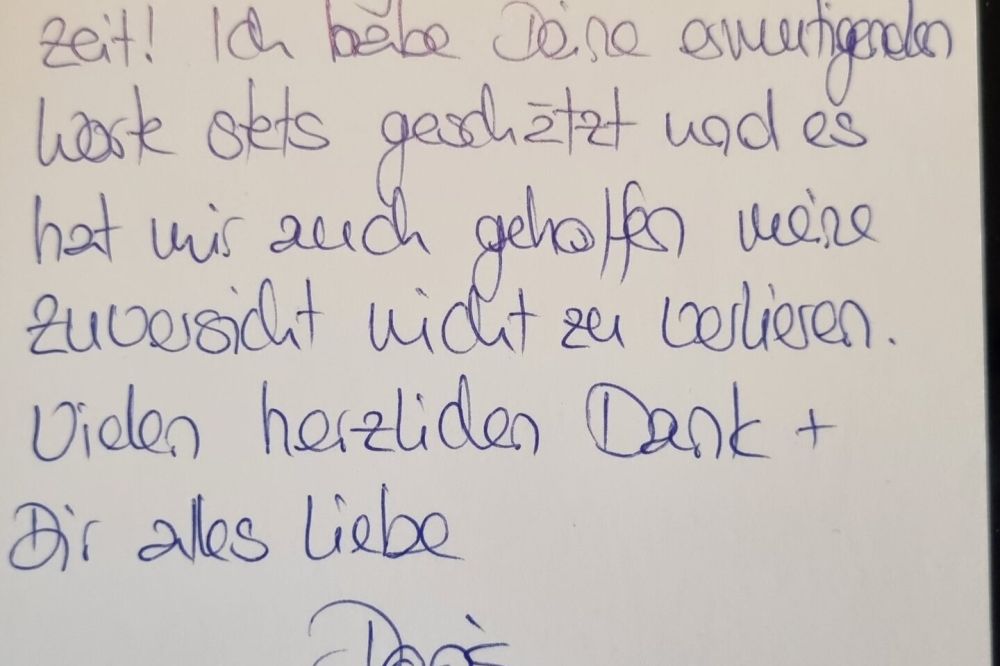 zeit! Ich habe Deine ermutigenden
Worte stets geschätzt und es
hat mir auch geholfen meine
Zuversicht nicht zu verlieren.
Vielen herzlichen Dank +
Dir alles Liebe